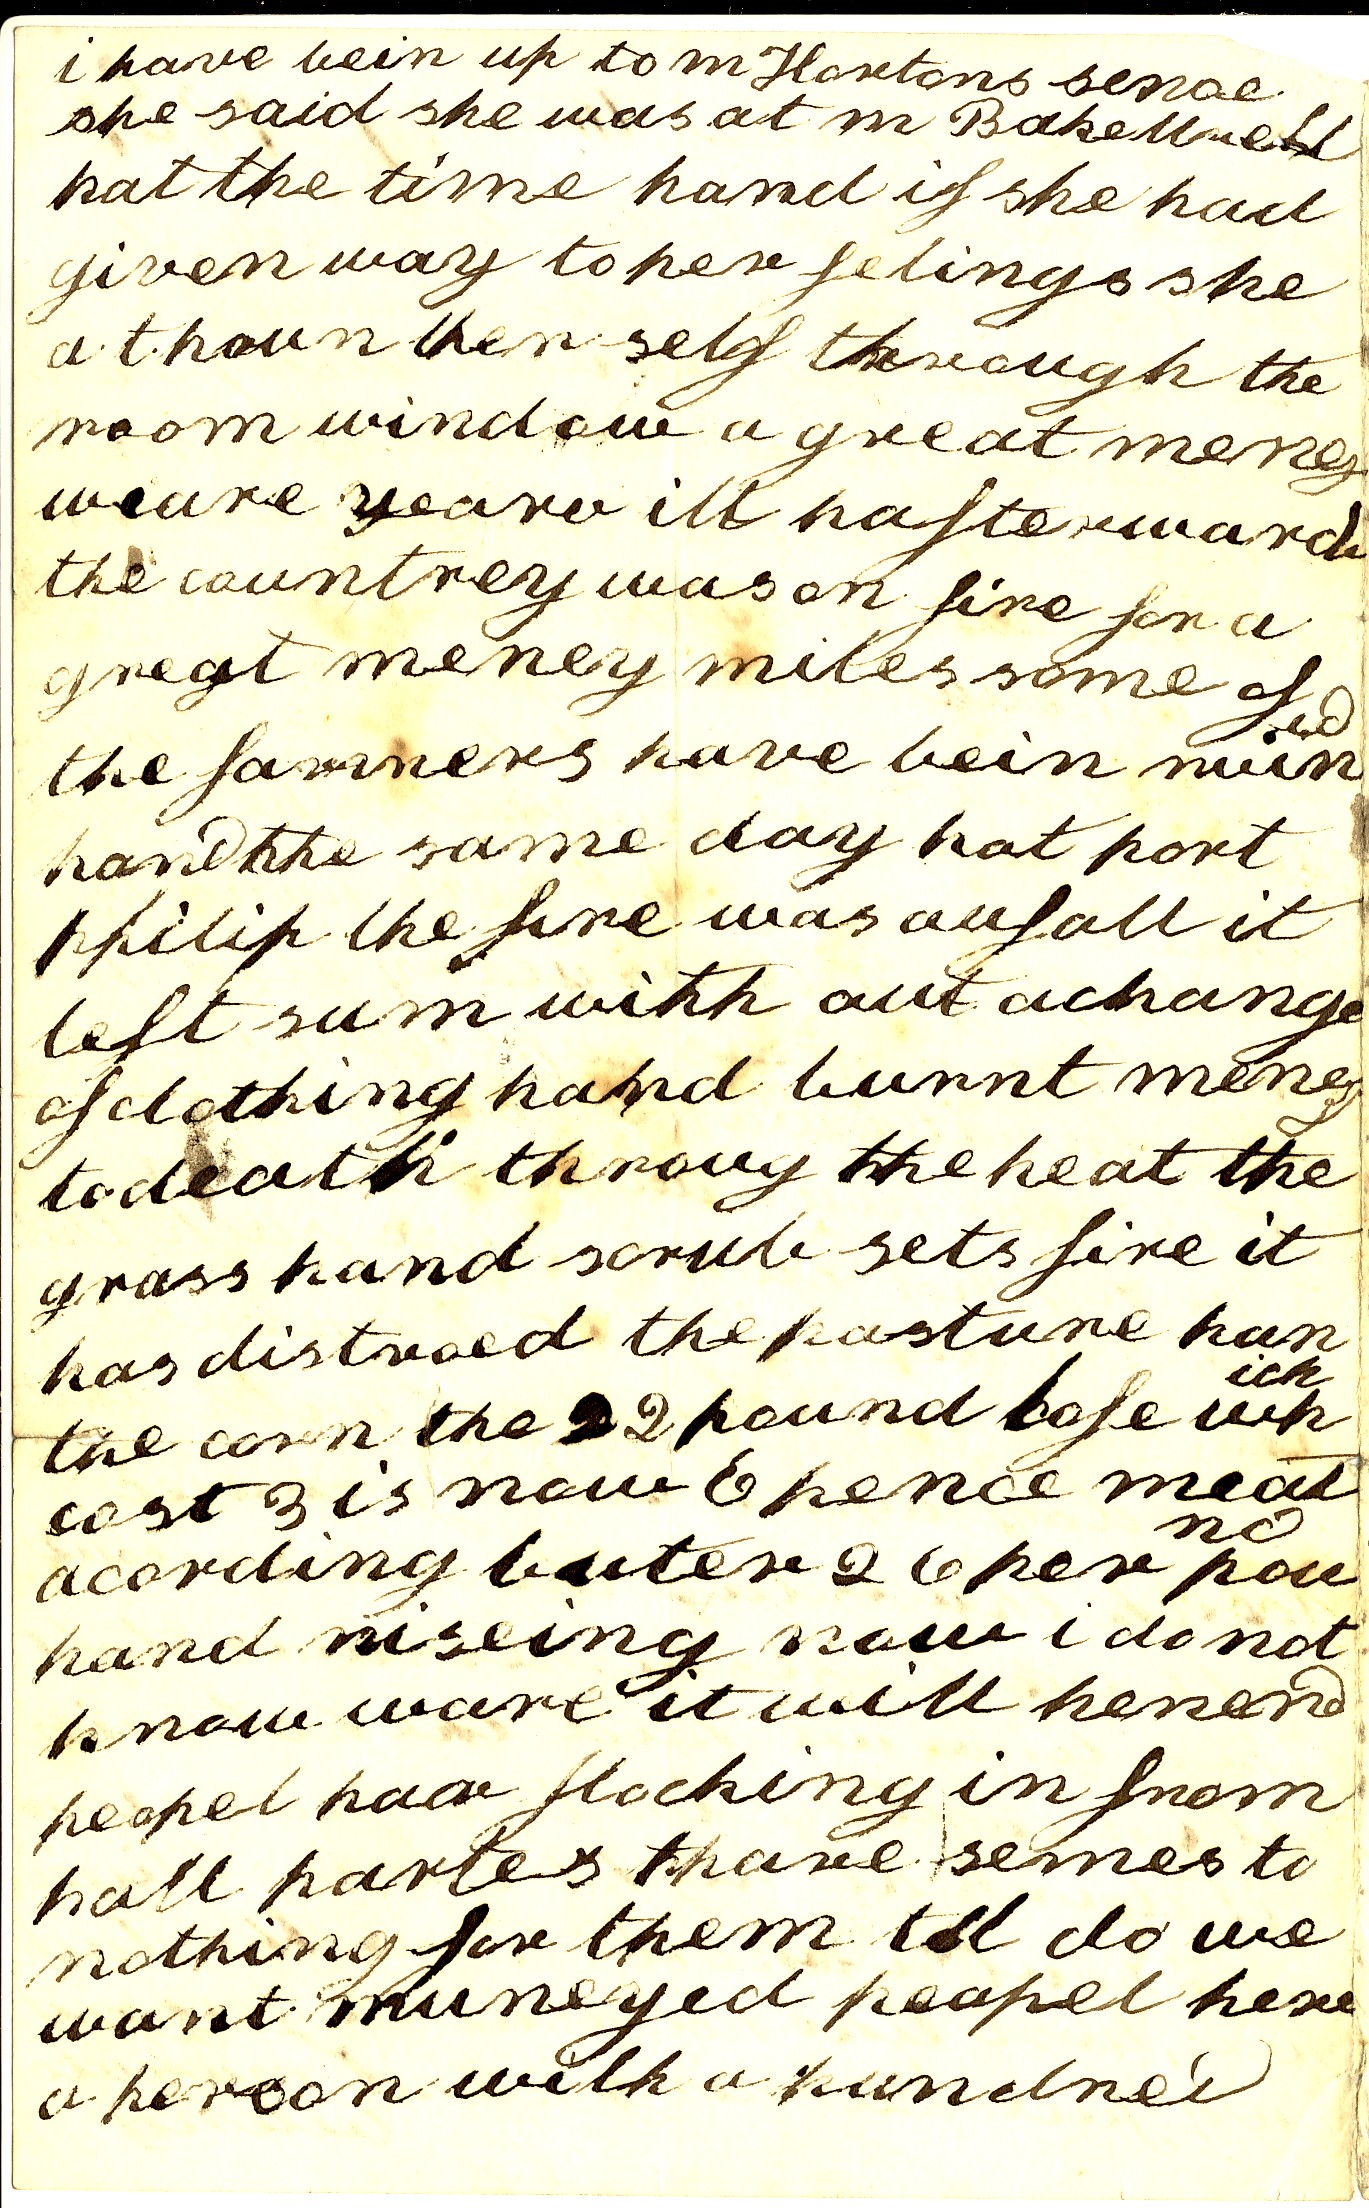 i have bein up to m Hortons sence
she said she was at m Bakewell
hat the time hand if she had
given way to her felings she
a thoun her self through the
room window a great meney
weare yearv ill hafterwards
the countrey was on fire for a
great meney miles some of
the farmers have bein ruined
hand the same day hat port
philip the fire was aufall it
left sum with out a change
of clothing hand burnt meney
to death throug the heat the
grass hand scrub sets fire it
has distroed the pasture han
the corn the 2 2 pound lofe which
cost 3 is now 6 pence meat
acording buter 2 6 per pound
hand riseing now i do not
know ware it will henend
peopel haar flocking in from
hall partes thare semes to
nothing for them till do we
want muneyed peopel here
a person with a hundred